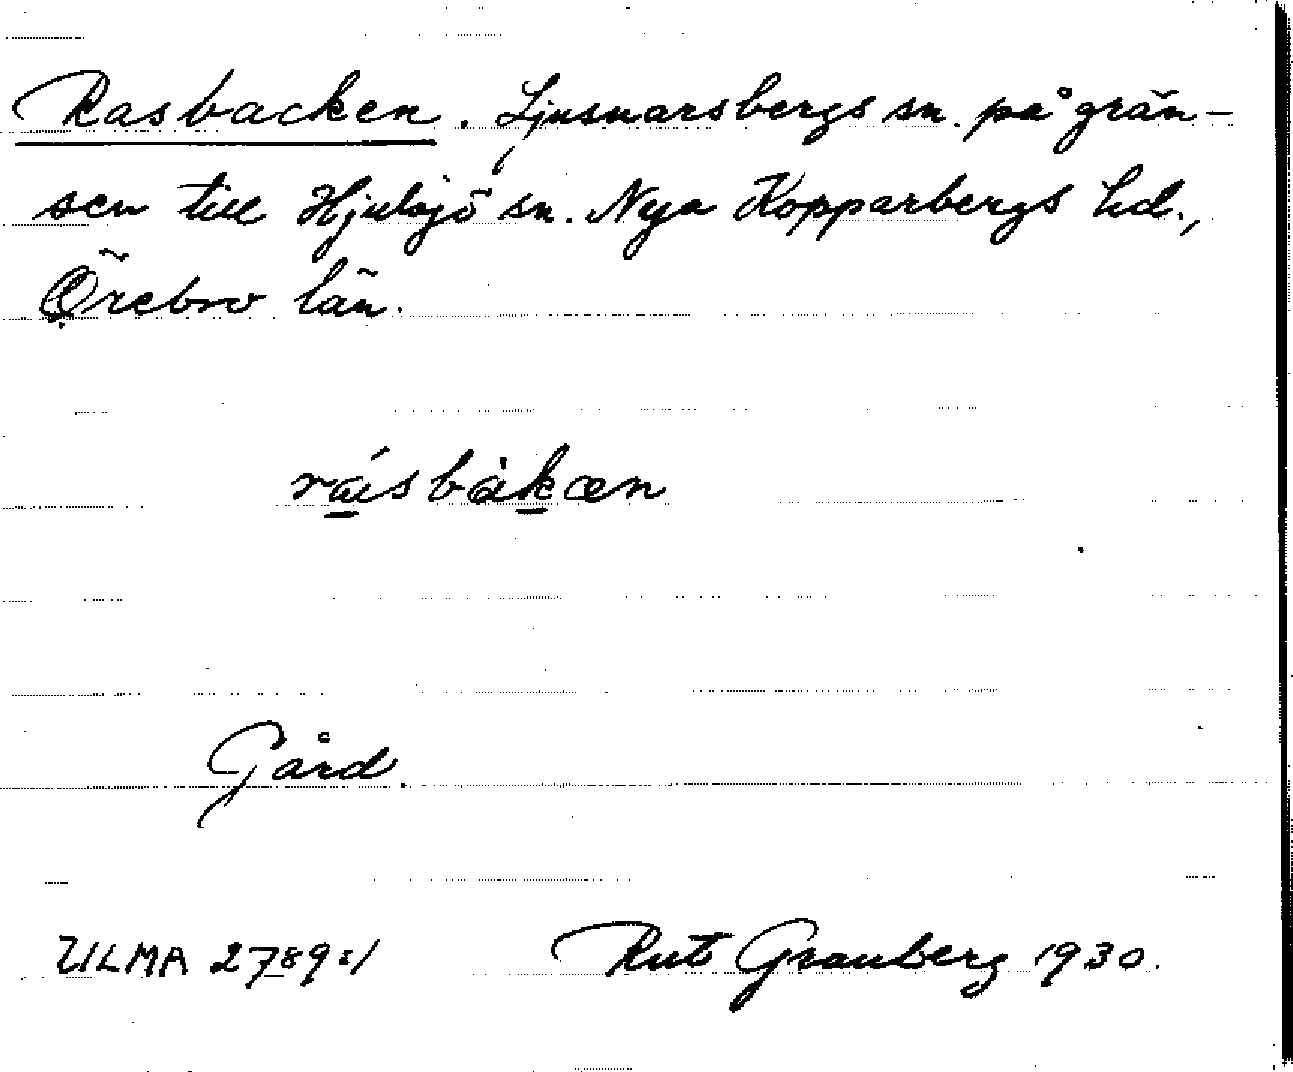 Rasbacken. Ljusnarsbergs sn. på grän-
sen till Hjulsjö sn. Nya Kopparbergs hd.,
Örebro län.
rásbàkæn
Gård.
ULMA 2789:1 Rut Granberg 1930.